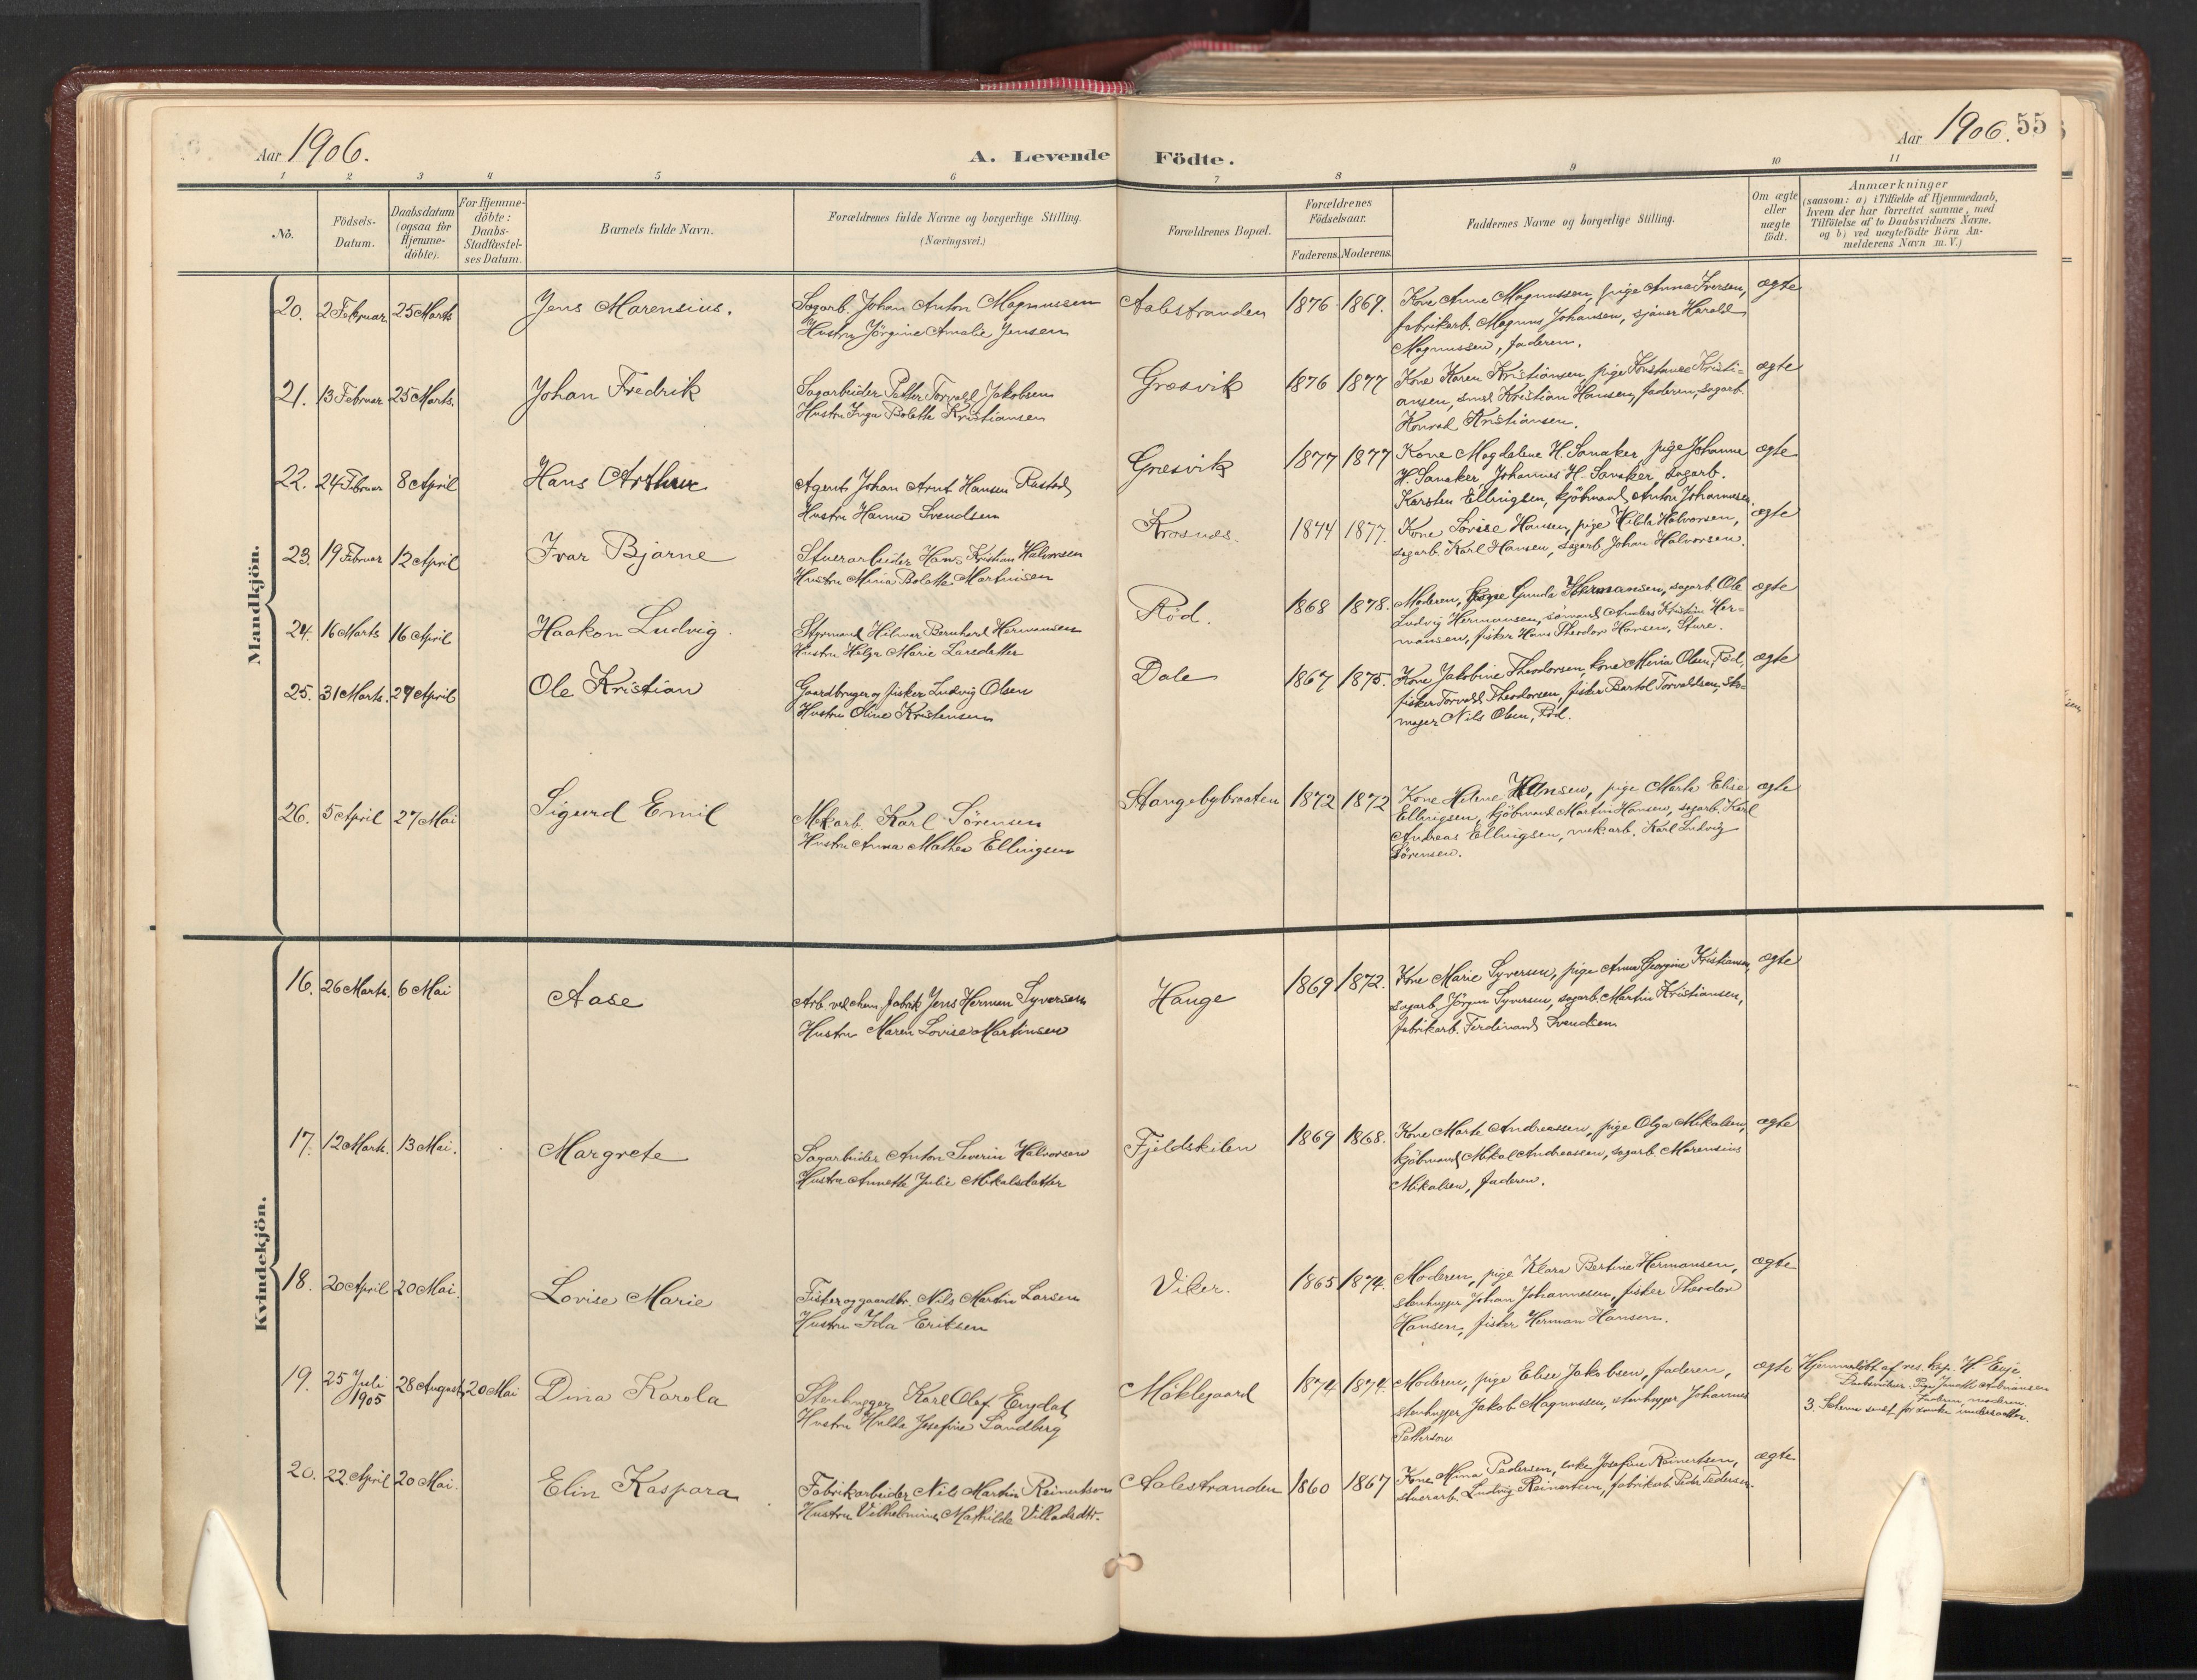 Aar 1906.
A. Levende Födte.
Aar 1906. 55
1 2 3 4 5 6 7 8 9 10 11
No.
Födsels-
Datum.
Daabsdatum
(ogsaa for
Hjemme-
döbte).
For Hjemme-
döbte:
Daabs-
Stadfæstel-
ses Datum.
Barnets fulde Navn.
Forældrenes fulde Navne og borgerlige Stilling.
(Næringsvei.)
Forældrenes Bopæl.
Forældrenes
Födselsaar.
Faderens. Moderens.
Faddernes Navne og borgerlige Stilling.
Om ægte
eller
uægte
födt.
Anmærkninger
(saasom: a) i Tilfælde af Hjemmedaab,
hvem der har forrettet samme, med
Tilföielse af to Daabsvidners Navne.
og b) ved uægtefödte Börn An-
melderens Navn m. V.)
Mandkjön.
20. 2 Februar 25 Marts Jens Marensius. Sagarb. Johan Anton Magnussen
Hustru Jörgine Amalie Jensen
Aalestranden 1876 1869. Kone Anne Magnussen, pige Anna Iversen,
fabrikarb. Magnus Johansen, sjauer Harald
Magnussen, faderen.
ægte
21. 13 Februar 25 Marts. Johan Fredrik Sagarbeider Petter Torvald Jakobsen
Hustru Inga Bolette Kristiansen
Græsvik 1876 1877 Kone Karen Kristiansen, pige Konstance Kristi-
ansen, smed Kristian Hansen, faderen, sagarb.
Konrad Kristiansen.
ægte
22. 24 Februar 8 April Hans Arthur Agent Johan Arnt Hansen Rastad
Hustru Hanna Svendsen
Græsvik 1877 1877 Kone Magdalene H. Sanaker pige Johanne
H. Sanaker, Johannes H. Sanaker, sagarb.
Karsten Ellingsen, kjöbmand Anton Johannesen.
ægte
23. 19 Februar 12 April Ivar Bjarne Stuerarbeider Hans Kristian Halvorsen
Hustru Mina Bolette Martinsen
Krosnes. 1874 1877. Kone Lovise Hansen, pige Hilda Halvorsen,
sagarb. Karl Hansen, sagarb. Johan Halvorsen.
ægte
24. 16 Marts 16 April Haakon Ludvig. Styrmand Hilmar Bernhard Hermansen
Hustru Helga Marie Larsdatter
Röd. 1868 1878. Moderen, pige Gunda Hermansen, sagarb. Ole
Ludvig Hermansen, sömand Anders Kristian Her-
mansen, fisker Hans Theodor Hansen, Sture.
ægte
25. 31 Marts. 29 April Ole Kristian Gaardbruger og fisker Ludvig Olsen
Hustru Oline Kristensen
Dale 1867 1875. Kone Jakobine Theodorsen, kone Mina Olsen, Röd,
fisker Torvald Theodorsen, fisker Bertol Torvaldsen, sko-
mager Nils Olsen, Röd.
ægte
26. 5 April 27 Mai Sigurd Emil Mek. arb. Karl Sörensen
Hustru Anna Mathea Ellingsen
Stangebybraaten 1872 1872 Kone Helene Hansen, pige Marte Elise
Ellingsen, kjöbmand Martin Hansen, sagarb. Karl
Andreas Ellingsen, mek. arb. Karl Ludvig
Sörensen.
ægte
Kvindekjön.
16. 26 Marts. 6 Mai Aase Arb. ved chem. fabrik Jens Herman Syversen
Hustru Maren Lovise Martinsen
Hauge 1869 1872. Kone Marie Syversen, pige Anna Georgine Kristiansen,
sagarb. Jörgen Syversen, sagarb. Martin Kristiansen,
fabrikarb. Ferdinand Svendsen
ægte
17. 12 Marts. 13 Mai. Margrete Sagarbeider Anton Severin Halvorsen
Hustru Annette Julie Mikalsdatter
Fjeldskilen 1869 1868. Kone Marte Andreassen, pige Olga Mikalsen,
kjöbmand Mikal Andreassen, sagarb. Marensius
Mikalsen, faderen.
ægte
18. 20 April 20 Mai. Lovise Marie Fisker og gaardbr. Nils Martin Larsen
Hustru Ida Eriksen
Viker. 1865 1874. Moderen, pige Klara Bertine Hermansen,
stenhugger Johan Johannesen, fisker Theodor
Hansen, fisker Herman Hansen.
ægte
19. 25 Juli
1905 28 August 20 Mai Dina Karola Stenhugger Karl Olaf Engdal
Hustru Hulda Josefine Sandberg
Möklegaard 1874 1874. Moderen, pige Elise Jakobsen, faderen,
stenhugger Jakob Magnussen, stenhugger Johannes
Petterson
ægte Hjemmedöbt af res. kap. H. Evje
Daabsvidner: Pige
Faderen, moderen.
3. Schema sendt
20. 22 April 20 Mai. Elin Kaspara Fabrikarbeider Nils Martin Reinertsen
Hustru Vilhelmine Mathilde Villadsdtr.
Aalestranden 1860 1867 Kone Mina Pedersen, enke Josefine Reinertsen,
stuerarb. Ludvig Reinertsen, fabrikarb. Peder Pedersen.
ægte